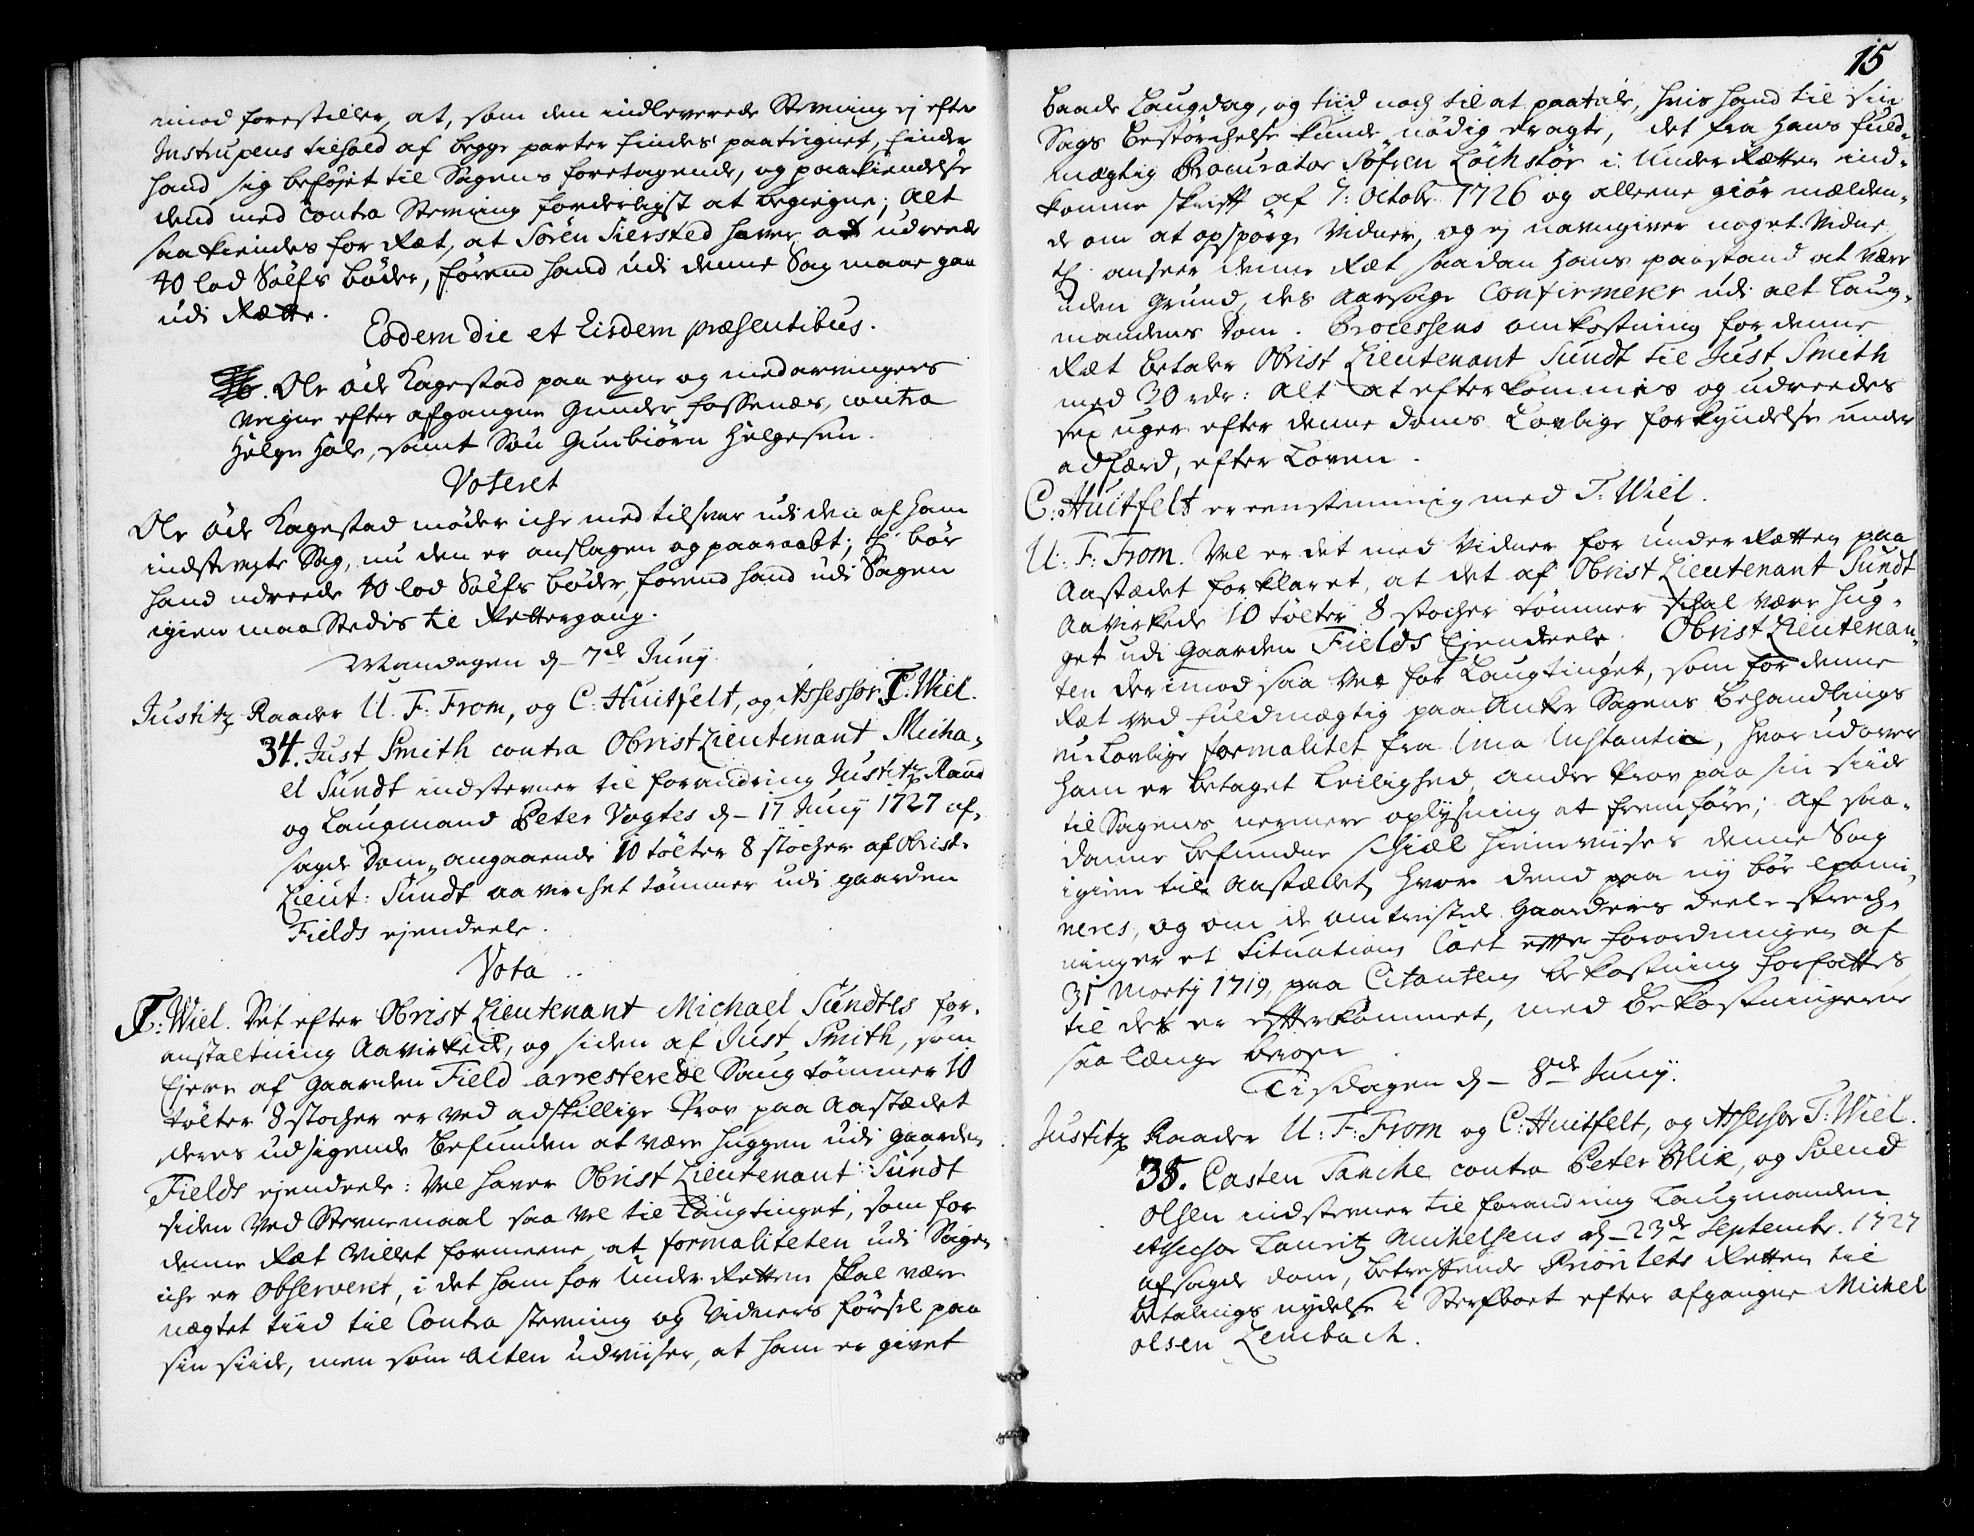 imod forestiller, at, som den indleverede Stevning ej efter
Instruxens tilhold af begge parter findes paateignet, finder
hand sig beføjet til Sagens foretagende, og paakiendelse
dend med Contra Stevning forderligst at begiegne; Alt
saa kiendes for Ræt, at Sören Siersted haver at udreede
40 lod Sölfs bøder, førend hand udi denne Sag maae gaa
udi Rætte.
Eodem die et Eisdem præsentibus.
Ole öde Kagestad paa egne og medarvingers
veigne efter afgangne Gunder fossenæs, contra
Helge Hole, samt Søn Gunbiörn Helgesen.
Voteret
Ole öde Kagestad møder iche med tilsvar udi den af ham
indstevnte Sag, nu den er anslagen og paaraabt; thi bør
hand udreede 40 lod Sølfs bøder, førend hand udi Sagen
igien maa Stedis til Rettergang.
Mandagen d. 7de Junij.
Justitz Raader U. F. From, og C. Huitfelt, og Assessor T. Wiel.
34. Just Smith contra Obrist Lieutenant Micha-
el Sundt indstevner til forandring Justitz Raad
og Laugmand Peter Vogtes d. 17 Junij 1727 af-
sagde Dom, angaaende 10 tölter 8 stocher af Obrist-
Lieut: Sundt aavirchet tømmer udi gaarden
Fields ejendeele.
Vota
T: Wiel. Det efter Obrist Lieutenant Michael Sundtes for-
anstaltning Aavirkede, og siden af Just Smith, som
Ejere af Gaarden Field arresterede Saug tømmer 10
tölter 8 stocher er ved adskillige Prov paa Aastædet
deres udsigende befunden at være huggen udi gaarden
Fields ejendeele: Vel haver Obrist Lieutenant Sundt
siden ved Stevnemaal saa vel til Laugtinget, som for
denne Ræt villet formeene, at formaliteten udi Sagen
iche er Observeret, i det ham for Under Retten skal være
nægtet tiid til Contra stevning og Vidners førsel paa
sin siide, men som Acten udviiser, at ham er givet
15
baade Laugdag, og tiid noch til at paatale, hvis hand til sin
Sags bestörchelse kunde nødig eragte, det fra hans fuld-
mægtig Procurator Söfren Löchstör i Under Retten ind-
komne skrift af 7: Octobr. 1726 og alleene giør mælden-
de om at opspörge Vidner, og ej navngiver noget Vidne
thi anseer denne Ræt saadan hans paastand at være
uden Grund, des Aarsage Confirmeres udi alt Laug-
mandens Dom. Processens omkostning for denne
Ræt betaler Obrist Lieutenant Sundt til Just Smith
med 30 rdr: Alt at efterkommis og udreedes
sex uger efter denne Doms Lovlige forkyndelse under
adfærd, efter Loven.
C: Huitfelt er eenstemmig med T: Wiel.
U: F: From. Vel er det med Vidner for under Retten paa
Aastædet forklaret, at det af Obrist Lieutenant Sundt
Aavirkede 10 tölter 8 stocher tømmer schal være hug-
get udi Gaarden Fields Ejendeele. Obrist Lieutenan-
ten derimod saa vel for Laugtinget, som for denne
Ræt ved fuldmægtig paa Anker Sagens behandlings
u-Lovlige formalitet fra Ima Instantia, hvorudover
ham er betaget Leilighed, andre Prov paa sin siide
til Sagens nermere oplysning at fremføre; Af saa-
danne befundne schiæl hiemviises denne Sag
igien til Aastædet, hvor dend paa ny bør exami-
neres, og om de omtvistede Gaarders deele strech-
ninger et Situations Cart efter forordningen af
31 Martij 1719, paa Citantens bekostning forfattes,
til det er efterkommet, med bekostningerne
saa længe beroer.
Tisdagen d. 8de Junij.
Justitz Raader U: F: From og C: Huitfelt, og Assessor T: Wiel.
35. Casten Tanche contra Peter Blix, og Svend
Olsen indstevner til forandring Laugmanden
Assessor Lauritz Michelsens d. 23de Septembr. 1727
afsagde dom, betreffende Prioritets Retten til
betalings nydelse i Sterfboet efter afgangne Michel
olsen Lembach.